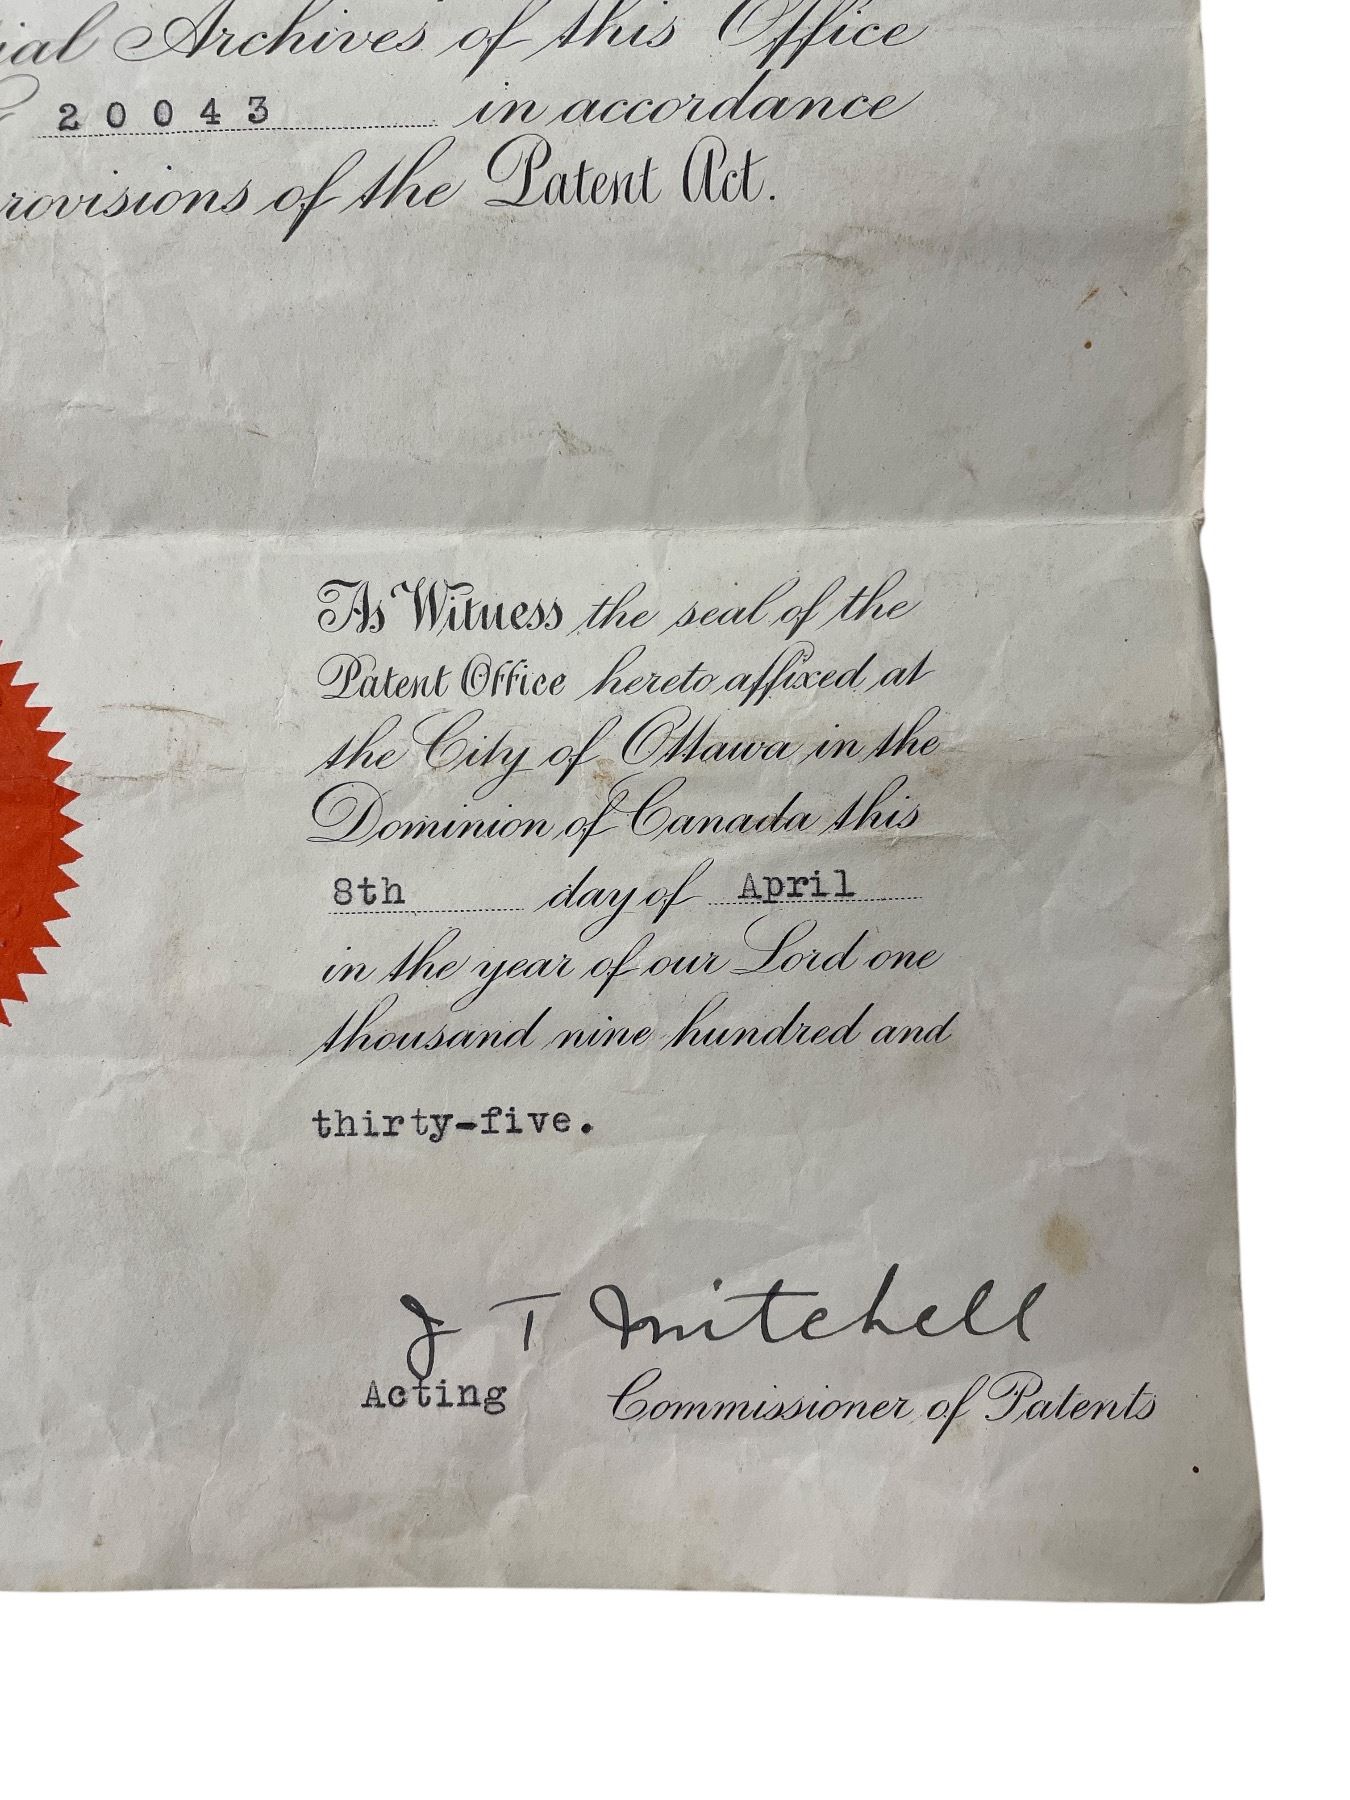 ial Archives of this Office
20043 in accordance
rovisions of the Patent Act.
As Witness the seal of the
Patent Office hereto affixed at
the City of Ottawa in the
Dominion of Canada this
8th day of April
in the year of our Lord one
thousand nine hundred and
thirty-five.
J T Mitchell
Acting Commissioner of Patents